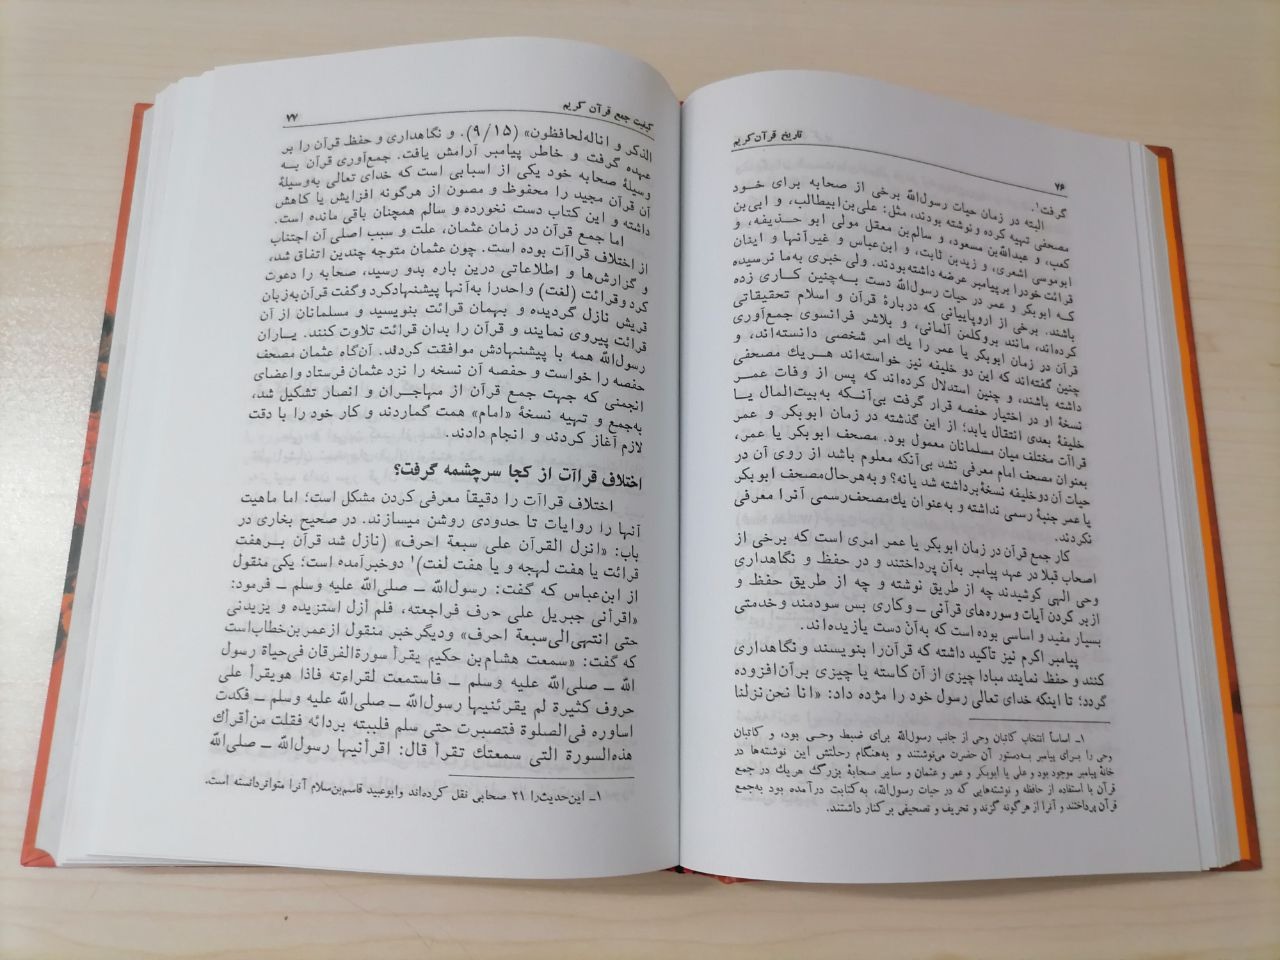 تاریخ قرآن کریم
۷۶
گرفت۱.
البته در زمان حیات رسول‌الله برخی از صحابه برای خود
مصحفی تهیه کرده و نوشته بودند، مثل: علی‌بن‌ابیطالب، و ابی‌بن
کعب، و عبدالله‌بن مسعود، و سالم‌بن معقل مولی ابو حذیفه، و
ابوموسی اشعری، و زیدبن ثابت، و ابن‌عباس و غیرآنها و اینان
قرائت خودرا بر پیامبر عرضه داشته‌بودند. ولی خبری به‌ما نرسیده
که ابوبکر و عمر در حیات رسول‌الله دست به‌چنین کاری زده
باشند. برخی از اروپاییانی که دربارهٔ قرآن و اسلام تحقیقاتی
کرده‌اند، مانند بروکلمن آلمانی، و بلاشر فرانسوی جمع‌آوری
قرآن در زمان ابوبکر یا عمر را یك امر شخصی دانسته‌اند، و
چنین گفته‌اند که این دو خلیفه نیز خواسته‌اند هریك مصحفی
داشته باشند، و چنین استدلال کرده‌اند که پس از وفات عمر
نسخهٔ او در اختیار حفصه قرار گرفت بی‌آنکه به‌بیت‌المال یا
خلیفهٔ بعدی انتقال یابد؛ از این گذشته در زمان ابوبکر و عمر
قراآت مختلف میان مسلمانان معمول بود. مصحف ابوبکر یا عمر،
بعنوان مصحف امام معرفی نشد بی‌آنکه معلوم باشد از روی آن در
حیات آن دوخلیفه نسخهٔ برداشته شد یانه؟ و به‌هرحال‌مصحف ابوبکر
یا عمر جنبهٔ رسمی نداشته و به‌عنوان یك‌مصحف‌رسمی آنرا معرفی
نکردند.
کار جمع قرآن در زمان ابوبکر یا عمر امری است که برخی از
اصحاب قبلا در عهد پیامبر به‌آن پرداختند و در حفظ و نگاهداری
وحی الهی کوشیدند چه از طریق نوشته و چه از طریق حفظ و
ازبر کردن آیات و سوره‌های قرآنی ــ و کاری بس سودمند و خدمتی
بسیار مفید و اساسی بوده است که به‌آن دست یازیده‌اند.
پیامبر اکرم نیز تاکید داشته که قرآن‌را بنویسند و نگاهداری
کنند و حفظ نمایند مبادا چیزی از آن کاسته یا چیزی برآن‌افزوده
گردد؛ تا اینکه خدای تعالی رسول خود را مژده داد: «انا نحن‌نزلنا
۱ــ اساساً انتخاب کاتبان وحی از جانب رسول‌الله برای ضبط وحی بود، و کاتبان
وحی را برای پیامبر به‌دستور آن حضرت می‌نوشتند و به‌هنگام رحلتش این نوشته‌ها در
خانهٔ پیامبر موجود بود و علی یا ابوبکر و عمر و عثمان و سایر صحابهٔ بزرگ هریك در جمع
قرآن با استفاده از حافظه و نوشته‌هایی که در حیات رسول‌الله، به‌کتابت درآمده بود به‌جمع
قرآن پرداختند و آنرا از هرگونه گزند و تحریف و تصحیفی بر کنار داشتند.
کیفیت جمع قرآن کریم
۷۷
الذکر و اناله‌لحافظون» (۹/۱۵). و نگاهداری و حفظ قرآن را بر
عهده گرفت و خاطر پیامبر آرامش یافت. جمع‌آوری قرآن به
وسیلهٔ صحابه خود یکی از اسبابی است که خدای تعالی به‌وسیلهٔ
آن قرآن مجید را محفوظ و مصون از هرگونه افزایش یا کاهش
داشته و این کتاب دست نخورده و سالم همچنان باقی مانده است.
اما جمع قرآن در زمان عثمان، علت و سبب اصلی آن اجتناب
از اختلاف قراآت بوده است. چون عثمان متوجه چندین اتفاق شد،
و گزارش‌ها و اطلاعاتی درین باره بدو رسید، صحابه را دعوت
کرد و قرائت (لغت) واحدرا به‌آنها پیشنهادکرد و گفت قرآن‌به‌زبان
قریش نازل گردیده و بهمان قرائت بنویسید و مسلمانان از آن
قرائت پیروی نمایند و قرآن را بدان قرائت تلاوت کنند. یــاران
رسول‌الله همه با پیشنهادش موافقت کردند. آن‌گاه عثمان مصحف
حفصه را خواست و حفصه آن نسخه را نزد عثمان فرستاد واعضای
انجمنی که جهت جمع قرآن از مهاجران و انصار تشکیل شد،
به‌جمع و تهیه نسخهٔ «امام» همت گماردند و کار خود را با دقت
لازم آغاز کردند و انجام دادند.
اختلاف قراآت از کجا سرچشمه گرفت؟
اختلاف قراآت را دقیقاً معرفی کردن مشکل است؛ اما ماهیت
آنها را روایات تا حدودی روشن میسازند. در صحیح بخاری در
باب: «انزل القرآن علی سبعة احرف» (نازل شد قرآن بر هفت
قرائت یا هفت لهجه و یا هفت لغت)۱ دوخبرآمده است؛ یکی منقول
از ابن‌عباس که گفت: رسول‌الله ــ صلی‌الله علیه وسلم ــ فرمود:
«اقرأنی جبریل علی حرف فراجعته، فلم أزل استزیده و یزیدنی
حتی انتهی‌الی‌سبعة احرف» ودیگرخبر منقول ازعمربن‌خطاب‌است
که گفت: «سمعت هشام‌بن حکیم یقرأ سورةالفرقان فی‌حیاة رسول
الله ــ صلی‌الله علیه وسلم ــ فاستمعت لقراءته فاذا هویقرأ علی
حروف کثیرة لم یقرئنیها رسول‌الله ــ صلی‌الله علیه وسلم ــ فکدت
اساوره فی‌الصلوة فتصبرت حتی سلم فلببته بردائه فقلت من‌أقرأك
هذه‌السورة التی سمعتك تقرأ قال: اقرأنیها رسول‌الله ــ صلی‌الله
۱ــ این‌حدیث‌را ۲۱ صحابی نقل کرده‌اند وابوعبید قاسم‌بن‌سلام آنرا متواتردانسته است.